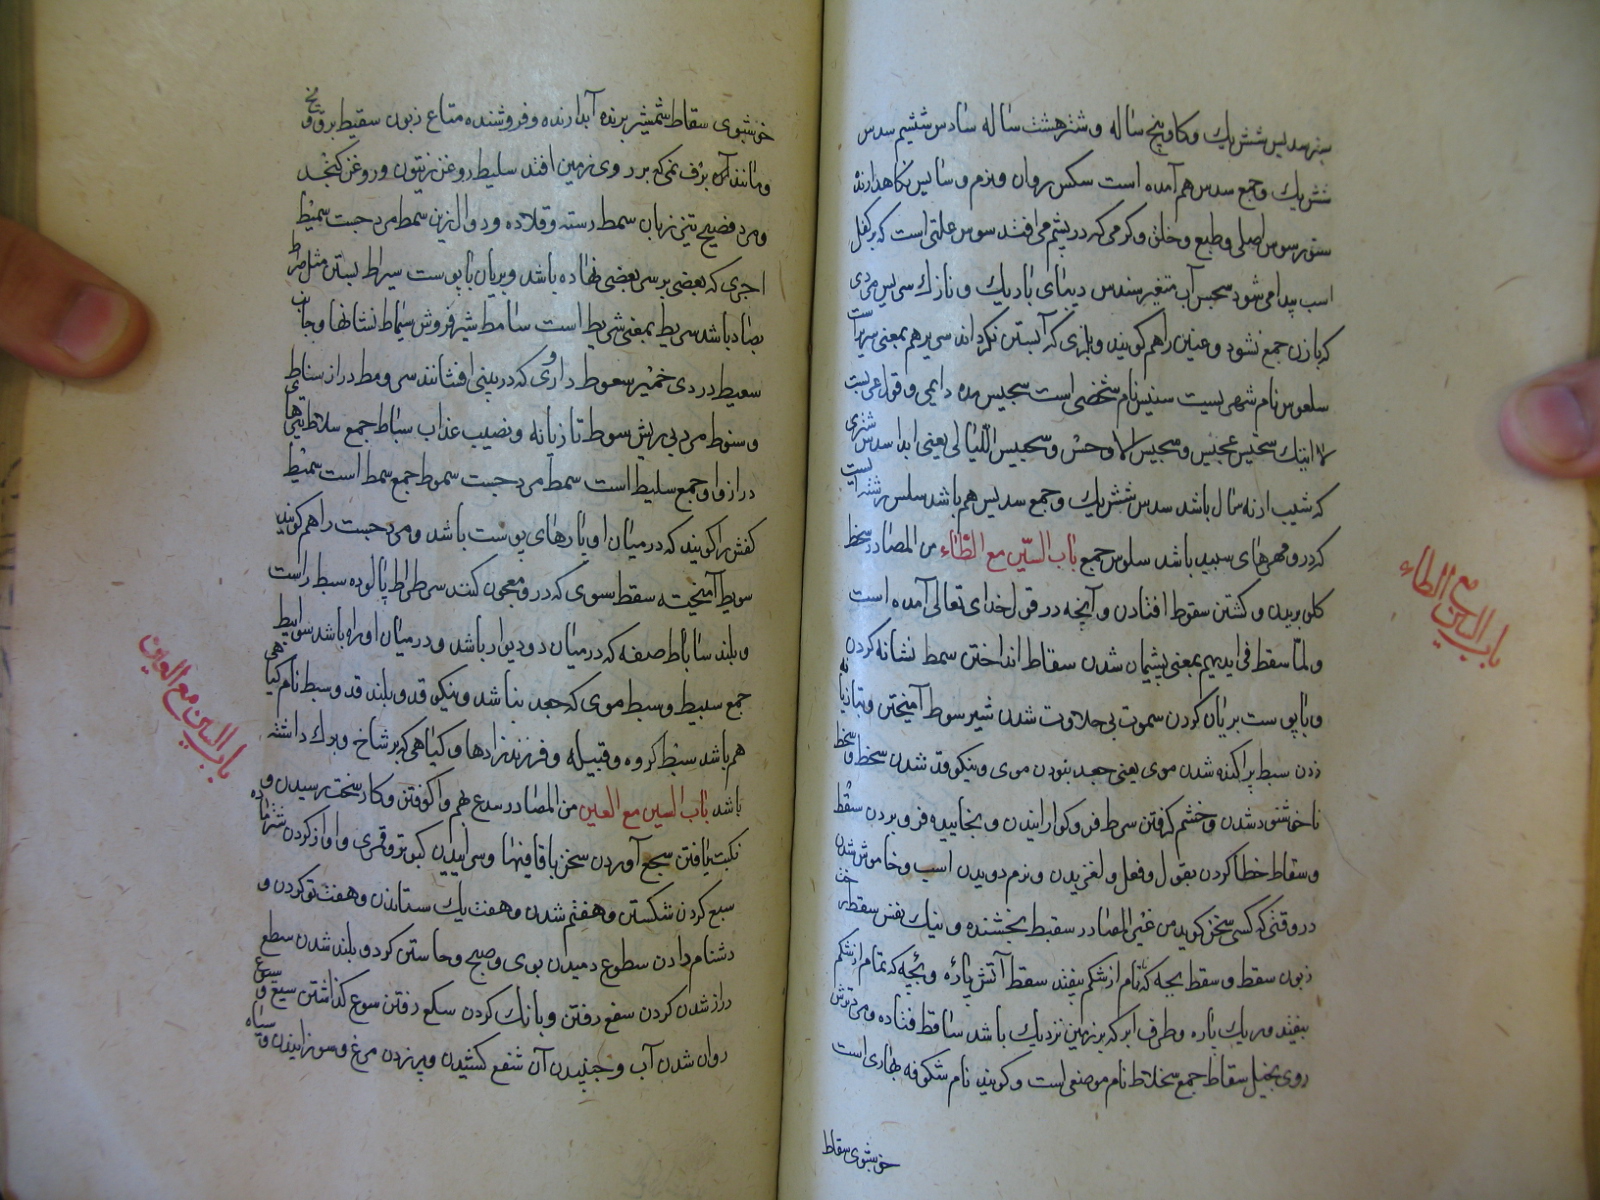 سدیس شش یک و کاو پنج ساله و شتر هشت ساله سادس ششم سدس
شش یک و جمع سدس هم آمده است سکس روان و نرم و سایس نکاهدارنده
ستور سوس اصلی و طبع و خلق و کرمی که در پشم می افتد سوس علتی است که بر کفل
اسب پیدا می شود سجس آب متغیر سندس دیبای باریک و نازک سریس مردی
که بازن جمع نشود و عنین را هم کویند و نری که آبستن نکرداند سریر هم بمعنی سریر است
سلعوس نام شهریست سنبس نام شخصی است سجیس مده دایمی و قول عربست
لا اتیک سجیس عجیس و سجیس الاوجس و سجیس اللیالی یعنی ابدا سدس شتری
که شیب از نه سال باشد سدس شش یک و جمع سدیس هم باشد سلس رشته ایست
که درو مهرهای سپید باشد سلوس جمع باب السین مع الطاء من المصادر سخط
کلو بریدن و کشتن سقوط افتادن و آنچه در قول خدای تعالی آمده است
ولما سقط فی ایدیهم بمعنی پشیمان شدن سقاط انداختن سمط نشانه کردن
و با پوست بریان کردن سموت بی حلاوت شدن شیر سوط آمیختن و بتازیانه
زدن سبط پراکنده شدن موی یعنی جعد نبودن موی و نیکو قد شدن سخط و سخط
ناخوشنود شدن و خشم کرفتن سرط فرو کوارانیدن و نجاییده فرو بردن سقط
و سقاط خطا کردن بقول و فعل و لغزیدن و نرم دویدن اسب و خاموش شدن
در وقتی که کسی سخن کوید من غیر المصادر سقیط بخشنده و نیک نفس سقط رخت
زبون سقط و سقط بچه که تمام از شکم بیفتد سقط آتش پاره و بچه که تمام از شکم
بیفتد و ریک پاره و طرف ابر که بر زمین نزدیک باشد ساقط فتاده و مرد ترش
روی بخیل سقاط جمع سخلاط نام موضعی است و کویند نام شکوفه بهاری است
خوشبوی سقاط
باب السین مع الطاء
خوشبوی سقاط شمشیر برنده آبدارنده و فروشنده متاع زبون سقیط برف و یخ
و مانند آن که برف نمی که بر روی زمین افتد سلیط روغن زیتون و روغن کنجد
و مرد فصیح تیز زبان سمط رسته و قلاده و دوال زین سمط مرد جست سمیط
اجری که بعضی بر سر بعضی نهاده باشد و بریان با پوست سیراط بستن مثل صراط
بصاد باشد سریط بمعنی شریط است سامط شیر فروش سیماط نشانها و جانب
سعیط دردی خمیر سعوط داروی که در بینی افشانند سرومط دراز سناط
و سنوط مرد بی ریش سوط تازیانه و نصیب عذاب سیاط جمع سلاط تیرهای
دراز و او جمع سلیط است سمط مرد جست سموط جمع سمط است سمیط
کفش را کویند که در میان او پارهای پوست باشد و مرد جست را هم کویند
سویط آمیخته سقط سبوی که درو معجون کنند سرطراط پالوده سبط راست
و بلند ساباط صفه که در میان دو دیوار باشد و در میان او راه باشد سوابیط
جمع سبیط و سبط موی که جعد نباشد و نیکو قد و بلند قد و سبط نام کیاهی
هم باشد سبط کروه و قبیله و فرزند زادها و کیاهی که بر شاخ و برک داشته
باشد باب السین مع العین من المصادر سدع بهم وا کوفتن و کار سخت رسیدن و
نکبت یافتن سجع آوردن سخن با قافیتها و سراییدن کبوتر و قمری و آواز کردن شتر ماده
سبع کردن شکستن و هفتم شدن و هفت یک ستاندن و هفت تو کردن و
دشنام دادن سطوع دمیدن بوی و صبح و خاستن کرد و بلند شدن سطع
دراز شدن کردن سقع رفتن و بانک کردن سکع رفتن سوع کذاشتن سیع و سیوع
روان شدن آب و جنبیدن آن سفع کشیدن و پر زدن مرغ و سوزانیدن و سیاه
باب السین مع العین